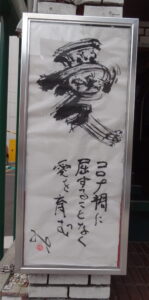 コロナ禍に
屈することなく
愛を育む